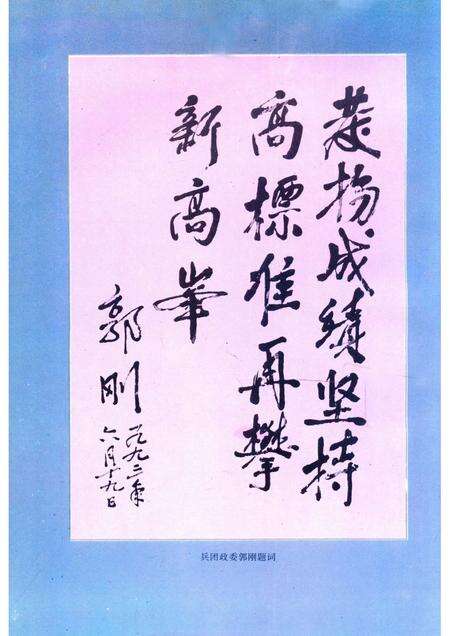 发扬成绩坚持
高标准再攀
新高峯
郭刚
一九九二年
六月十九日
兵团政委郭刚题词